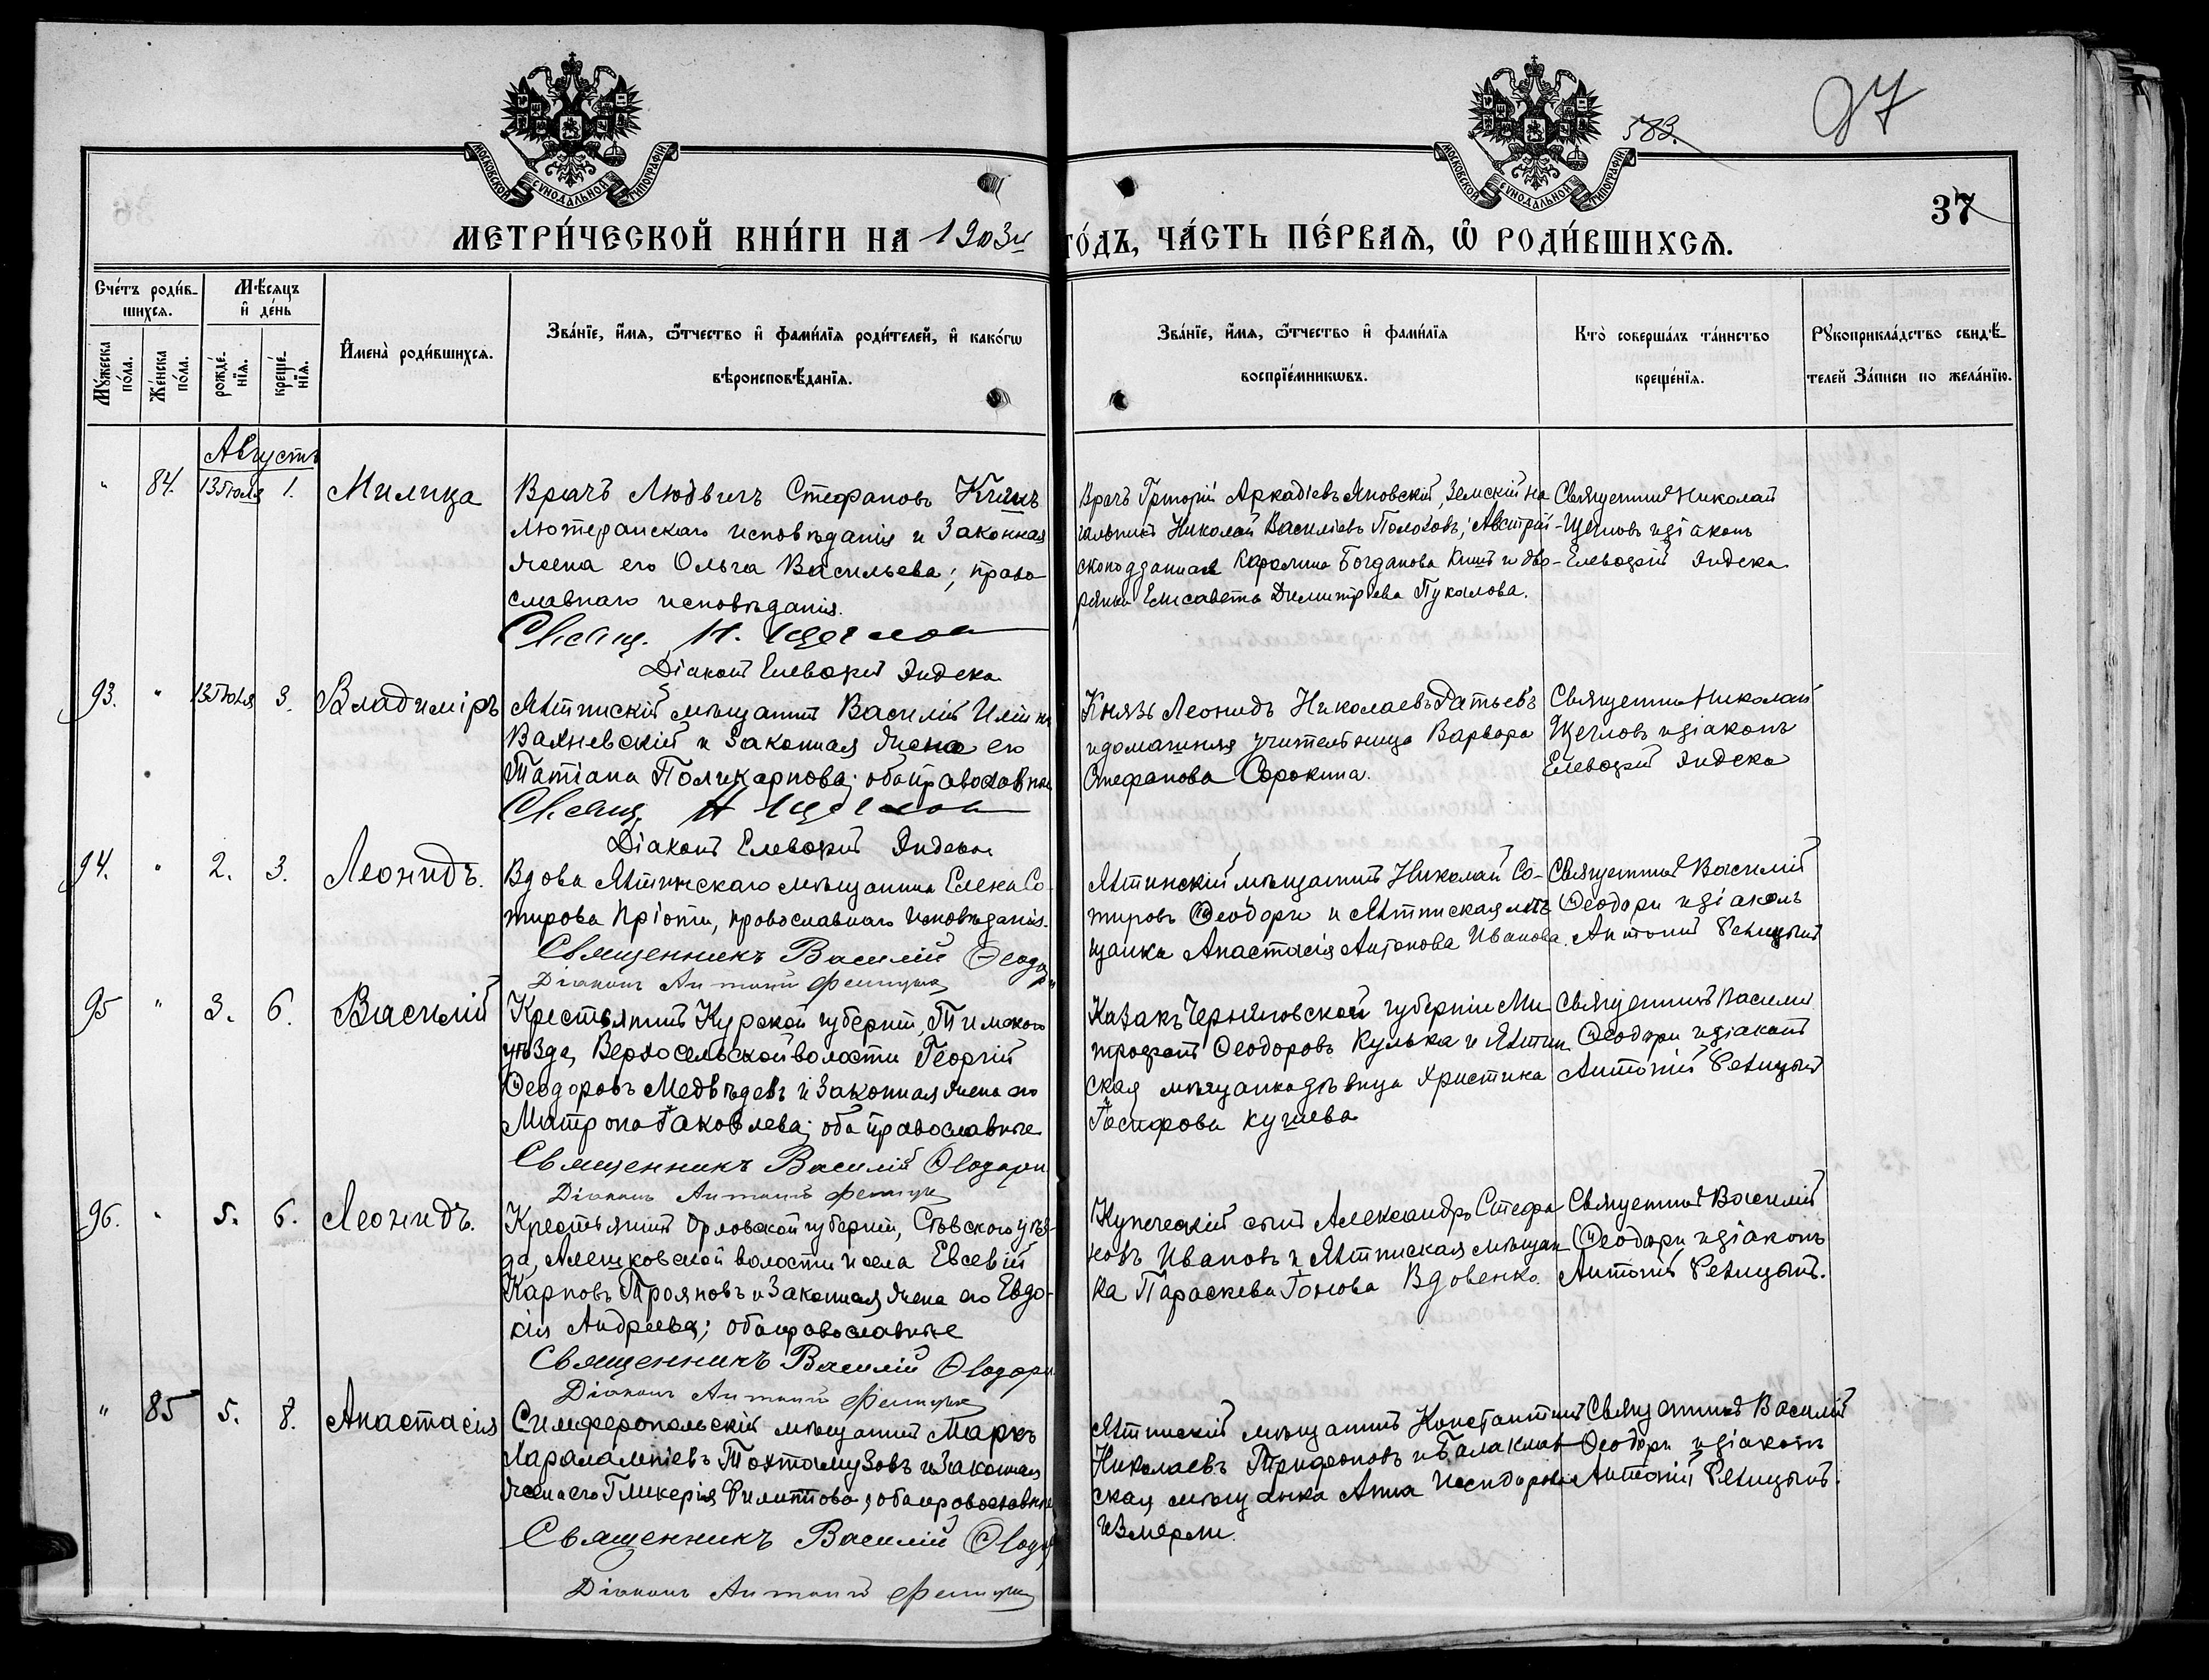 МОСКОВСКОЙ СѴНОДАЛЬНОЙ ТИПОГРАФІИ.
МОСКОВСКОЙ СѴНОДАЛЬНОЙ ТИПОГРАФІИ.
583.
97
37
МЕТРИ́ЧЕСКОЙ КНИ́ГИ НА 1903й
ГО́ДЪ, ЧА́СТЬ ПЕ́РВАѦ, Ѡ҆ РОДИ́ВШИХСѦ.
Сче́тъ роди́в-
шихсѧ.
Мꙋ́жеска по́ла.
Же́нска по́ла.
Мѣ́сѧцъ
и҆ де́нь
рожде́нїѧ.
креще́нїѧ.
И҆мена̀ роди́вшихсѧ.
Зва́нїе, и҆́мѧ, ѻ҆́тчество и҆ фами́лїѧ роди́телей, и҆ како́гѡ
вѣроисповѣ́данїѧ.
Зва́нїе, и҆́мѧ, ѻ҆́тчество и҆ фами́лїѧ
воспрїе́мникѡвъ.
Кто̀ соверша́лъ та́инство
креще́нїѧ.
Рꙋкоприкла́дство свидѣ́-
телей За́писи по жела́нїю.
Августъ
" 84. 13 Іюля 1. Милица
Врачъ Людвигъ Стефановъ
Лютеранскаго исповѣданія и законная
жена его Ольга Васильева; право-
славнаго исповѣданія.
Свящ. Н. Щегловъ
Діаконъ Елевѳерій Эндека
Врачъ Григорій Аркадіевъ Яновскій, Земскій на-
чальникъ Николай Василіевъ Австрій-
скоподданная Каролина Богданова и дво-
рянка Елисавета Димитріева Пукалова.
Священникъ Николай
Щегловъ и діаконъ
Елевѳерій Эндека
93. " 13 Іюля 3. Владиміръ
Ялтинскій мѣщанинъ Василій Иліинъ
Вахневскій и законная жена его
Татіана Поликарпова; оба православные
Свящ. Н Щегловъ
Діаконъ Елевѳерій Эндека
Князь Леонидъ Николаевъ Гатьевъ
и домашняя учительница Варвара
Стефанова Сорокина.
Священник Николай
Щегловъ и діаконъ
Елевѳерій Эндека
94. " 2. 3. Леонидъ.
Вдова Ялтинскаго мѣщанина Елена Со-
тирова Пріоти, православнаго исповѣданія.
Священникъ Василій Ѳеодори
Діаконъ Антоній Феницынъ
Ялтинскій мѣщанинъ Николай Со-
тировъ Ѳеодори и Ялтинская мѣ-
щанка Анастасія Антонова Иванова.
Священникъ Василій
Ѳеодори и діаконъ
Антоній Феницынъ
95 " 3. 6. Василій
Крестьянинъ Курской губерніи, Тимскаго
уѣзда, Верхосельской волости Георгій
Ѳеодоровъ Медвѣдевъ и законная жена его
Матрона Іаковлева; оба православные
Священникъ Василій Ѳеодори
Діаконъ Антоній Феницынъ
Казакъ Черниговской губерніи Ми-
трофанъ Ѳеодоровъ Кулька и Ялтин-
ская мѣщанка дѣвица Христина
Іосифова Кушева
Священникъ Василій
Ѳеодори и діаконъ
Антоній Феницынъ
96. " 5. 6. Леонидъ.
Крестьянинъ Орловской губерніи, Сѣвскаго уѣз-
да, Алешковской волости и села Евсевій
Карповъ Трояновъ и законная жена его Евдо-
кія Андреева; оба православные
Священникъ Василій Ѳеодори
Діаконъ Антоній Феницынъ
Купеческій сынъ Александръ Стефа-
новъ Ивановъ и Ялтинская мѣщан-
ка Параскева Іонова Вдовенко.
Священникъ Василій
Ѳеодори и діаконъ
Антоній Феницынъ.
" 85 5. 8. Анастасія
Симферопольскій мѣщанинъ Маркъ
Харалампіевъ Тохтамузовъ и законная
жена его Гликерія Филиппова; оба православные
Священникъ Василій Ѳеодори
Діаконъ Антоній Феницынъ
Ялтинскій мѣщанинъ Константинъ
Николаевъ Трифоновъ и Балаклав-
ская мѣщанка Анна Исидорова
Измерли.
Священникъ Василій
Ѳеодори и діаконъ
Антоній Феницынъ.